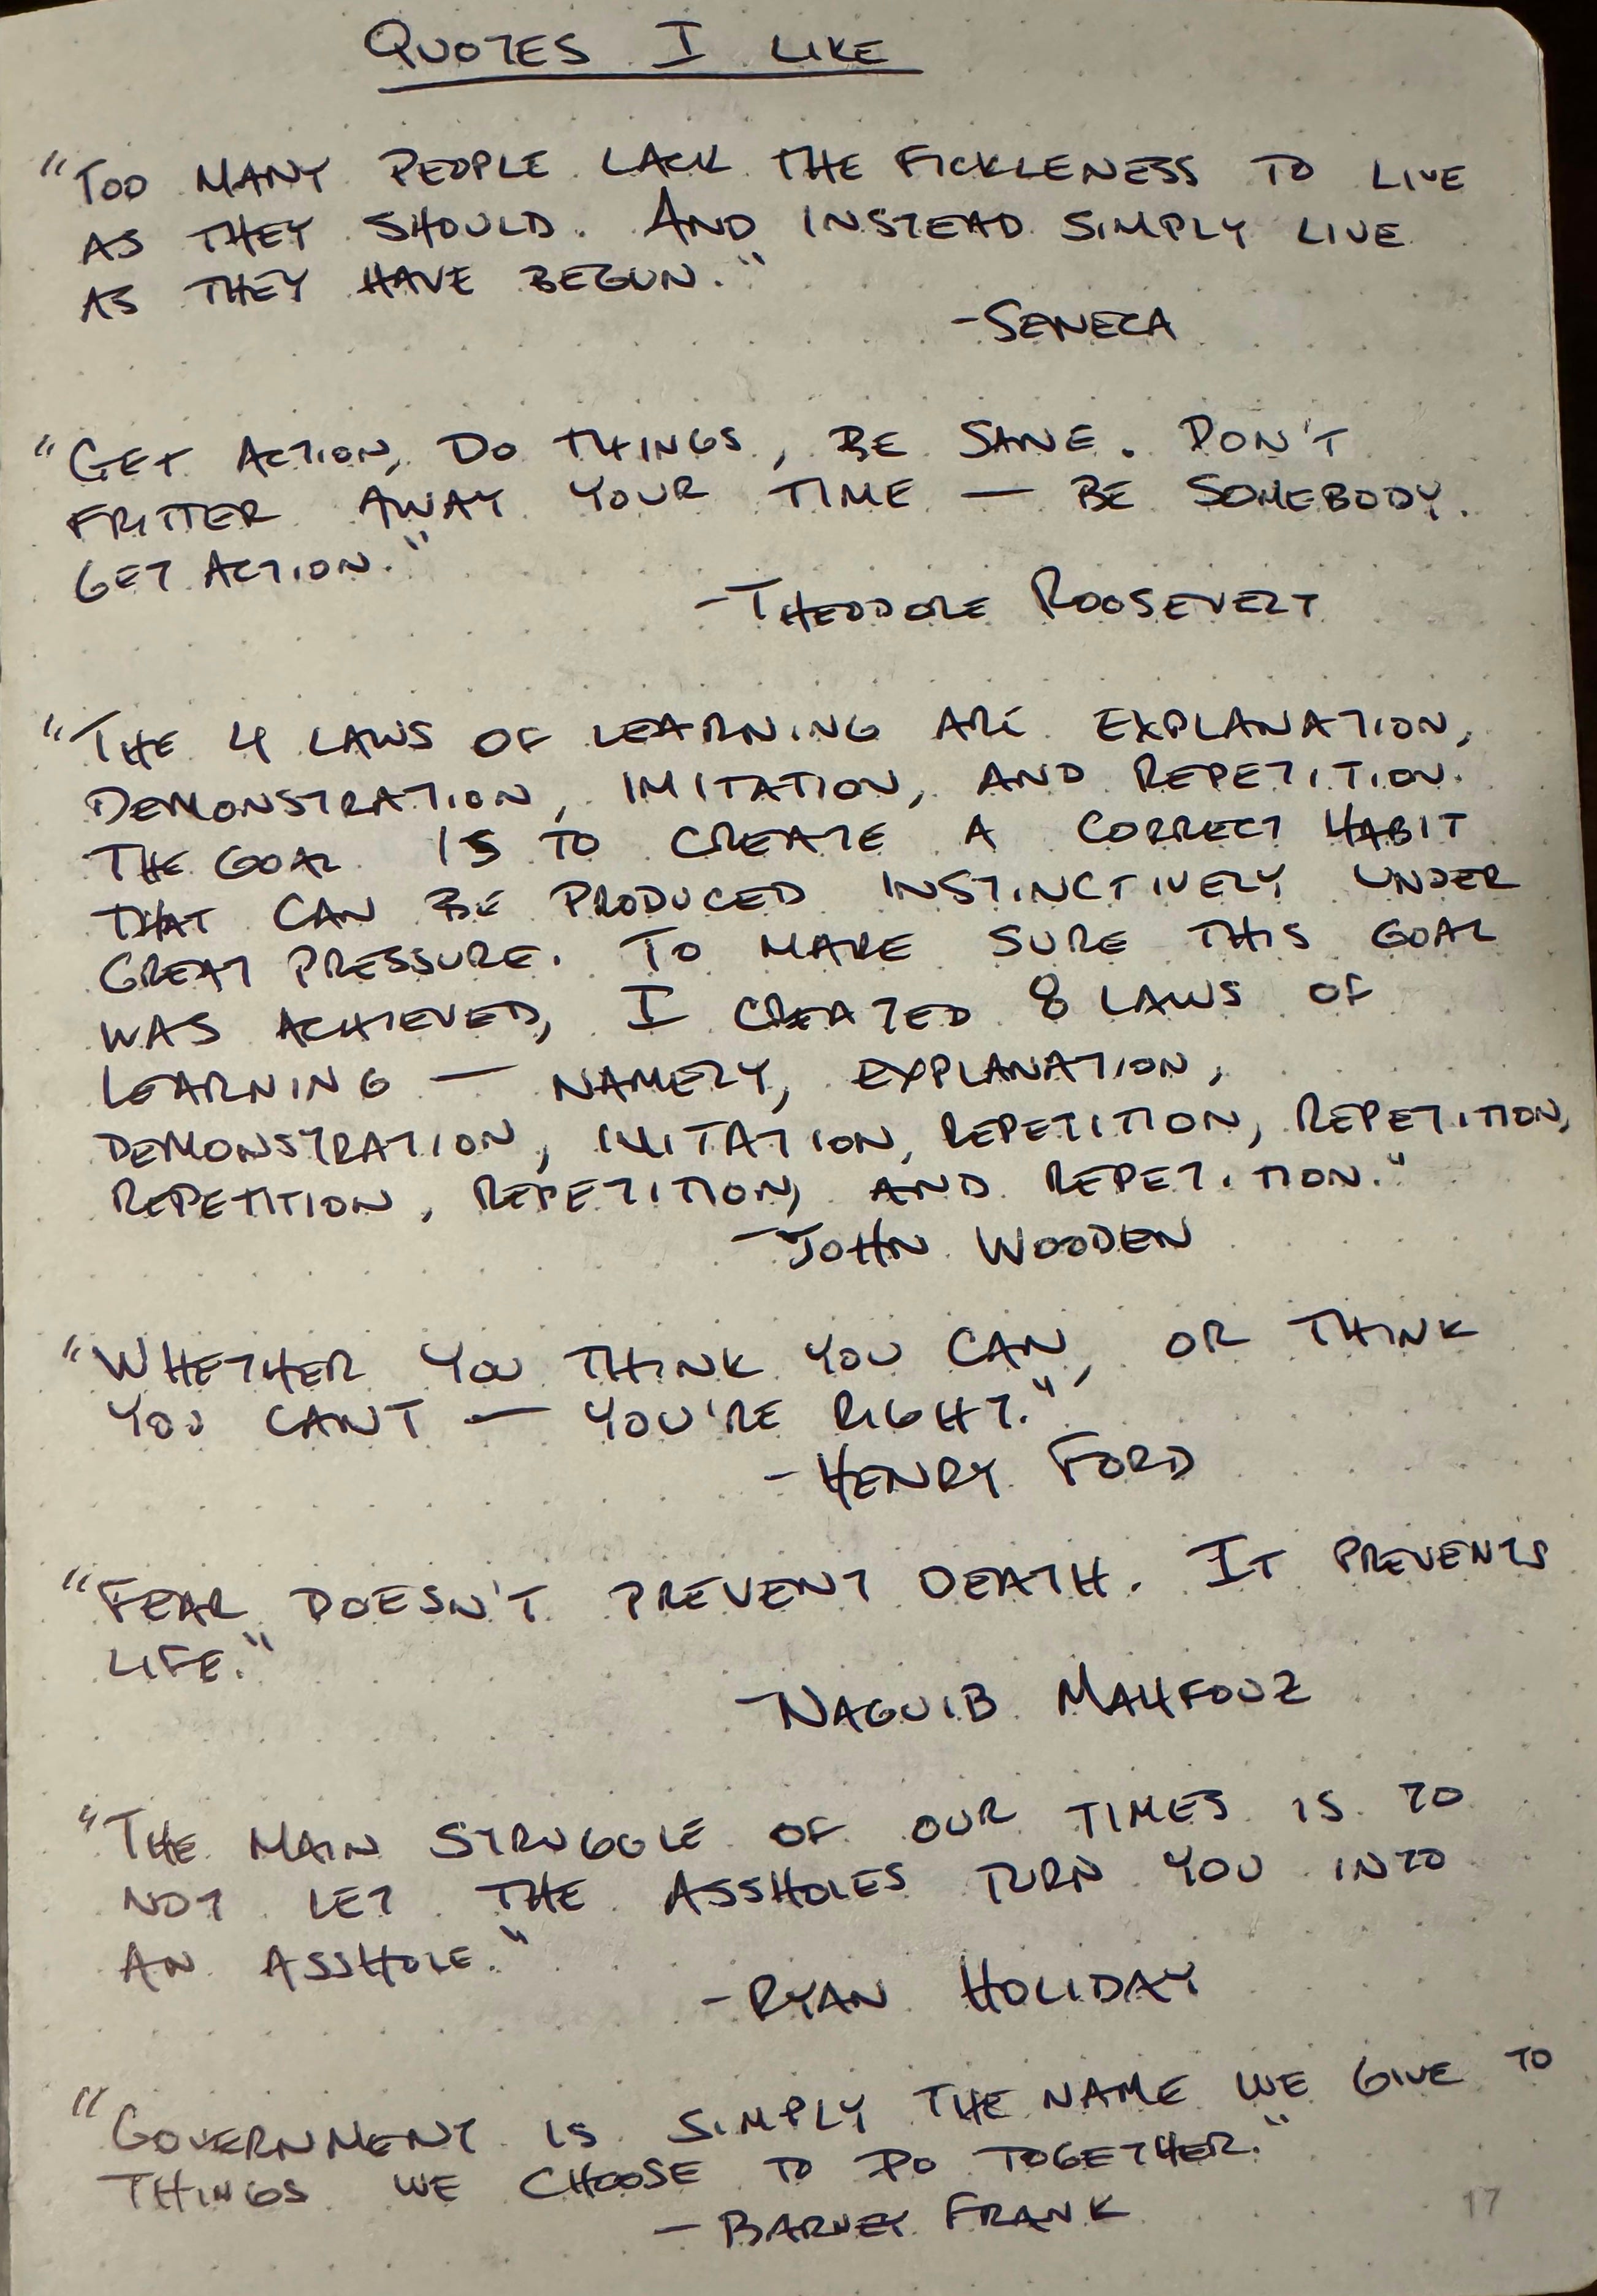 QUOTES I LIKE
"TOO MANY PEOPLE LACK THE FICKLENESS TO LIVE
AS THEY SHOULD. AND INSTEAD SIMPLY LIVE
AS THEY HAVE BEGUN."
-SENECA
"GET ACTION, DO THINGS, BE SANE. DON'T
FRITTER AWAY YOUR TIME — BE SOMEBODY.
GET ACTION."
-THEODORE ROOSEVELT
"THE 4 LAWS OF LEARNING ARE EXPLANATION,
DEMONSTRATION, IMITATION, AND REPETITION.
THE GOAL IS TO CREATE A CORRECT HABIT
THAT CAN BE PRODUCED INSTINCTIVELY UNDER
GREAT PRESSURE. TO MAKE SURE THIS GOAL
WAS ACHIEVED, I CREATED 8 LAWS OF
LEARNING — NAMELY, EXPLANATION,
DEMONSTRATION, IMITATION, REPETITION, REPETITION,
REPETITION, REPETITION, AND REPETITION."
-JOHN WOODEN
"WHETHER YOU THINK YOU CAN, OR THINK
YOU CANT — YOU'RE RIGHT."
-HENRY FORD
"FEAR DOESN'T PREVENT DEATH. IT PREVENTS
LIFE."
-NAGUIB MAHFOUZ
"THE MAIN STRUGGLE OF OUR TIMES IS TO
NOT LET THE ASSHOLES TURN YOU INTO
AN ASSHOLE."
-RYAN HOLIDAY
"GOVERNMENT IS SIMPLY THE NAME WE GIVE TO
THINGS WE CHOOSE TO DO TOGETHER."
-BARNEY FRANK
17